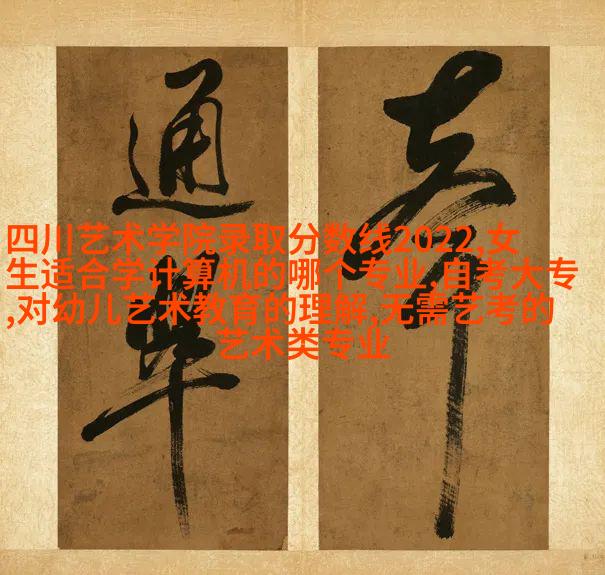 通
四川艺术学院录取分数线2022,女
生适合学计算机的哪个专业,自考大专
,对幼儿艺术教育的理解,无需艺考的
艺术类专业